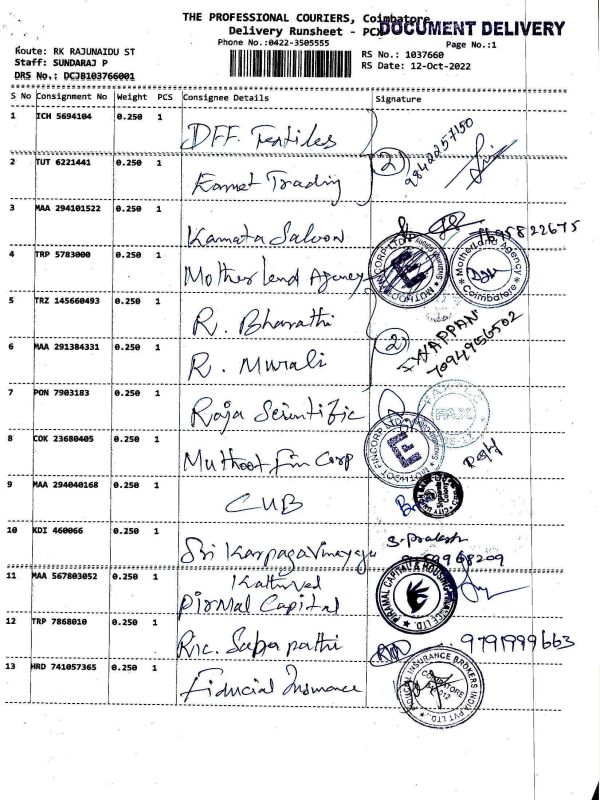 THE PROFESSIONAL COURIERS, Coimbatore
DOCUMENT DELIVERY
Delivery Runsheet - PCX
Phone No.:0422-3505555
Page No.:1
Route: RK RAJUNAIDU ST
RS No.: 1037660
Staff: SUNDARAJ P
RS Date: 12-Oct-2022
DRS No.: DCJB103766001
S No Consignment No Weight PCS Consignee Details Signature
1 ICH 5694104 0.250 1 DFF. Textiles
9842257150
2 TUT 6221441 0.250 1 Eamet Trading
2
3 MAA 294101522 0.250 1 Kamata Saloon
4 TRP 5783000 0.250 1 Mother lend Agency
MUTHOOT FINCORP LTD
Motherland Agency
Coimbatore
5 TRZ 145660493 0.250 1 R. Bharathi
6 MAA 291384331 0.250 1 R. Murali
2
IYYAPPAN
7094956502
7 PON 7903183 0.250 1 Raja Scientific
8 COK 23680405 0.250 1 Muthoot fin Corp
MUTHOOT FINCORP LTD
9 MAA 294040168 0.250 1 CUB
10 KDI 460066 0.250 1 Sri Karpagavinayaga
S. Prakash
Kathirvel
11 MAA 567803052 0.250 1 Pirmal Capital
PIRAMAL CAPITAL & HOUSING FINANCE LTD.
12 TRP 7868010 0.250 1 Ric. Sabapathi
9791999663
13 HRD 741057365 0.250 1 Fiducial Insurance
FIDUCIAL INSURANCE BROKERS INDIA PVT LTD.
COIMBATORE
641 012